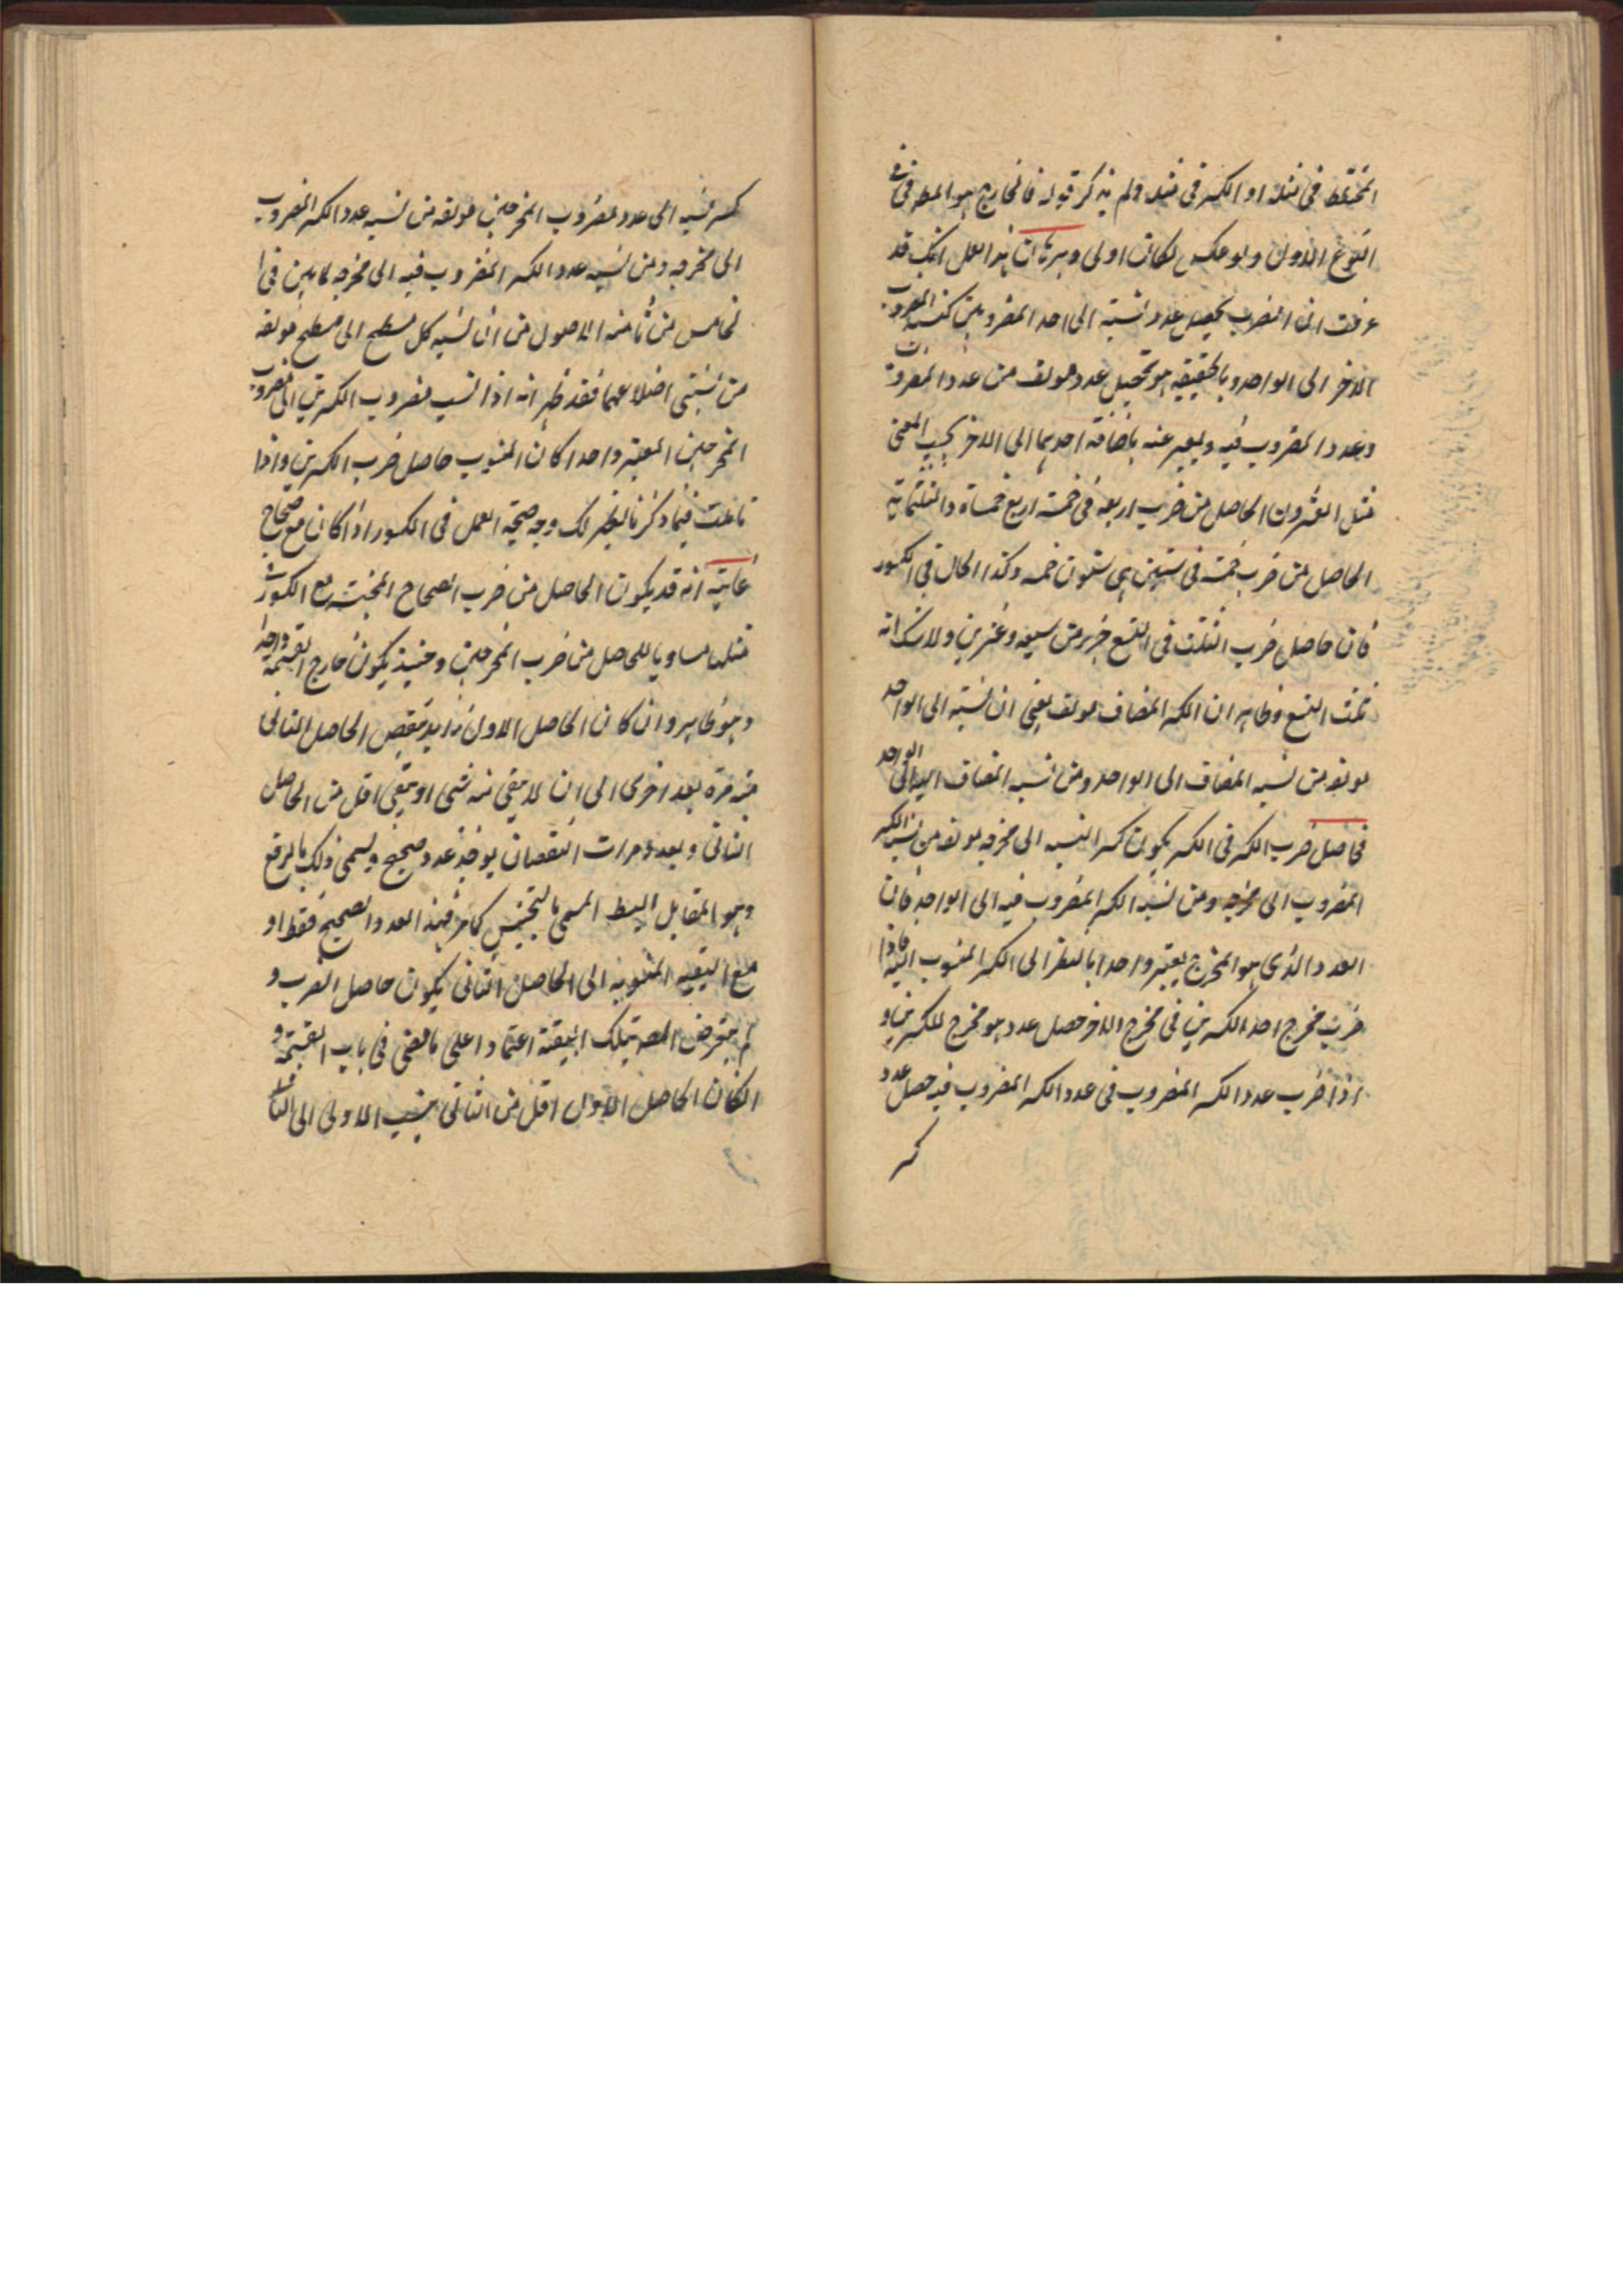 المختلط فى مثله او الكسر فى مثله ولم يذكر قوله فالخارج هو المط فى
النوع الاول ولو عكس لكان اولى وبرهان هذا العمل انك قد
عرفت ان الضرب تحصيل عدد نسبته الى احد المضروبين كنسبة المضروب
الاخر الى الواحد وبالحقيقة هو تحصيل عدد مولف من عدد المضروب
وعدد المضروب فيه ويعبر عنه باضافة احدهما الى الاخر بحسب المعنى
مثل العشرون الحاصل من ضرب اربعة فى خمسة اربع خمسات والثلثماية
الحاصل من ضرب خمسة فى ستين هى ستون خمسة وكذا الحال فى الكسور
فان حاصل ضرب الثلث فى التسع جزء من سبعة وعشرين ولا شك انه
ثلث التسع وظاهر ان الكسر المضاف مولف يعنى ان نسبته الى الواحد
مولفه من نسبة المضاف الى الواحد ومن نسبة المضاف اليه الى الواحد
فحاصل ضرب الكسر فى الكسر يكون كسر النسبه الى مخرجه مولفه من نسبة الكسر
المضروب الى مخرجه ومن نسبة الكسر المضروب فيه الى الواحد فان
العدد الذى هو المخرج يعتبر واحدا بالنظر الى الكسر المنسوب اليه فاذا
ضرب مخرج احد الكسرين فى مخرج الاخر حصل عدد هو مخرج للكسرين و
اذا ضرب عدد الكسر المضروب فى عدد الكسر المضروب فيه حصل عدد
كسر
كسر نسبه الى عدد مضروب المخرجين مولفه من نسبه عدد الكسر المضروب
الى مخرجه ومن نسبه عدد الكسر المضروب فيه الى مخرجه لما بين فى
خامس من ثامنه الاصول من ان نسبه كل مسطح الى مسطح مولفه
من نسبتى اضلاعهما فقد ظهر انه اذا نسب مضروب الكسرين الى مضروب
المخرجين المعتبر واحدا كان المنسوب حاصل ضرب الكسرين واذا
تاملت فيما ذكرنا ليظهر لك وجه صحة العمل فى الكسور اذا كان مع صحاح
غايته انه قد يكون الحاصل من ضرب الصحاح المجنسه مع الكسور فى
مثلها مساويا للحاصل من ضرب المخرجين وحينئذ يكون خارج القسمة واحدا
وهو ظاهر وان كان الحاصل الاول زايد ينقص الحاصل الثانى
منه مرة بعد اخرى الى ان لا يبقى منه شى او يبقى اقل من الحاصل
الثانى وبعدد مرات النقصان يوخذ عدد صحيح ويسمى ذلك بالرفع
وهو المقابل للبسط المسمى بالتجنيس كما مر فهذا العدد الصحيح فقط او
مع البقيه المنسوبه الى الحاصل الثانى يكون حاصل الضرب و
لم يتعرض المصه لتلك البقية اعتمادا على ما مضى فى باب القسمة و
ان كان الحاصل الاول اقل من الثانى ينسب الاول الى الثانى